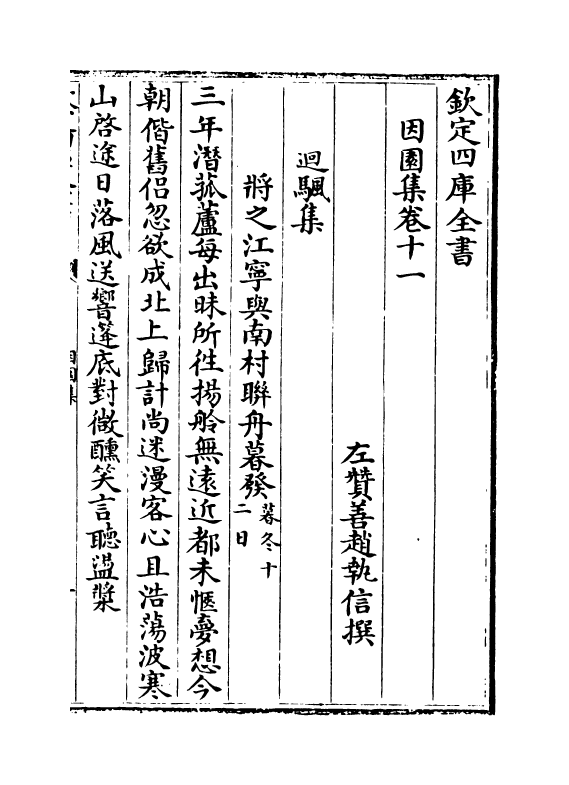 欽定四庫全書
因園集卷十一
左贊善趙執信撰
迴颿集
將之江寧與南村聯舟暮發暮冬十二日
三年潛菰蘆每出昧所徃揚舲無遠近都未愜夢想今
朝偕舊侶忽欲成北上歸計尚迷漫客心且浩蕩波寒
山啓途日落風送響蓬底對微醺笑言聽盪槳